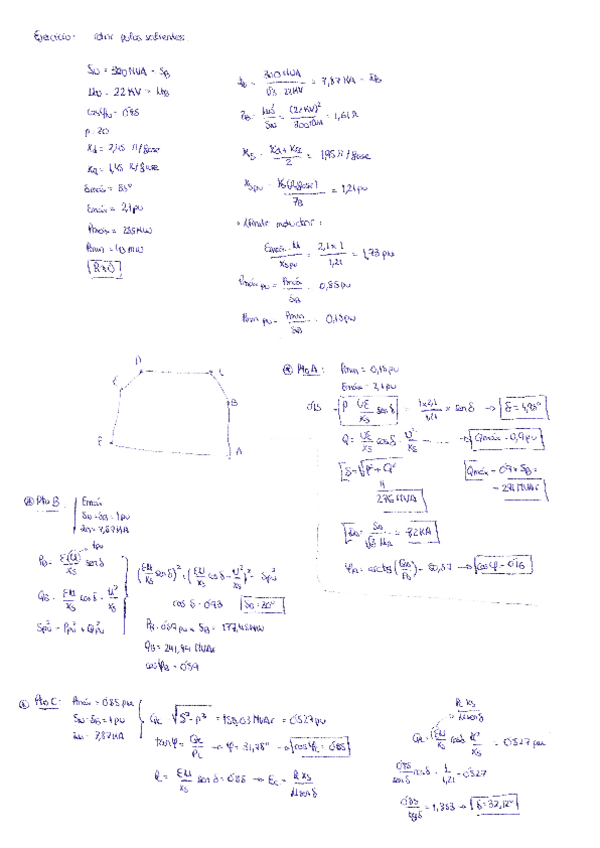 Ejercicio: rotor polos salientes
S_N = 300 MVA = S_B
U_N = 22 KV = U_B
cosφ_N = 0'85
p = 20
X_d =
X_q = 1,45 Ω/fase
δmáx =
Emáx = 2,1 pu
Pmáx = 255 MW
Pmin =
R≈0
I_B = 300 MVA / √3 · 22KV = 7,87 KA = I_N
Z_B = U_N² / S_N = (22KV)² / 300 MVA = 1,61 Ω
X_S = (X_d + X_q) / 2 = 1,95 Ω/fase
X_S pu = X_S (Ω/fase) / Z_B = 1,21 pu
Emáx · U / X_S pu = 2,1 × 1 / 1,21 = 1,73 pu
Pmáx pu = Pmáx / S_B = 0,85 pu
Pmin pu = Pmin / S_B = 0,15 pu
D
C
B
A
E
Pto A: Pmin = 0,15 pu
Emáx = 2,1 pu
0'15 = P = UE/X_S sen δ = 1×2,1 / 1,21 × sen δ → δ = 4,95º
Q = UE/X_S cos δ - U²/X_S → Qmáx = 0,9 pu
S = √P² + Q²
276 MVA
Qmáx = 0'9 × S_B =
I = S_A / √3 U_N = 7,2 KA
φ_A = arctg (Q_A / P_A) = 80,57 → cosφ = 0'16
Pto B: Emáx
S_N = S_B = 1 pu
I_N = 7,87 KA
1pu
P_B = E U / X_S sen δ
Q_B = EU/X_S cos δ - U²/X_S
S²pu = P²pu + Q²pu
(EU/X_S sen δ)² + (EU/X_S cos δ - U²/X_S)² = S²pu
cos δ = 0'93
P_B = 0'59 pu × S_B = 177,45 MW
Q_B = 241,94 MVAr
cosφ_B = 0'59
Pto C: Pmáx = 0'85 pu
S_N = S_B = 1 pu
I_N = 7,87 KA
Q_C = √S² - P² = 158,03 MVAr = 0'527 pu
tanφ = Q_C / P_C → φ = 31,78º → cosφ_C = 0'85
P_C = EU / X_S sen δ = 0'85 → E_C = P X_S / U sen δ
P X_S / U sen δ
Q_C = EU / X_S cos δ - U² / X_S = 0'527 pu
0'85 / sen δ cos δ - 1 / 1,21 = 0'527
0'85 / tg δ = 1,353 → δ = 32,12º